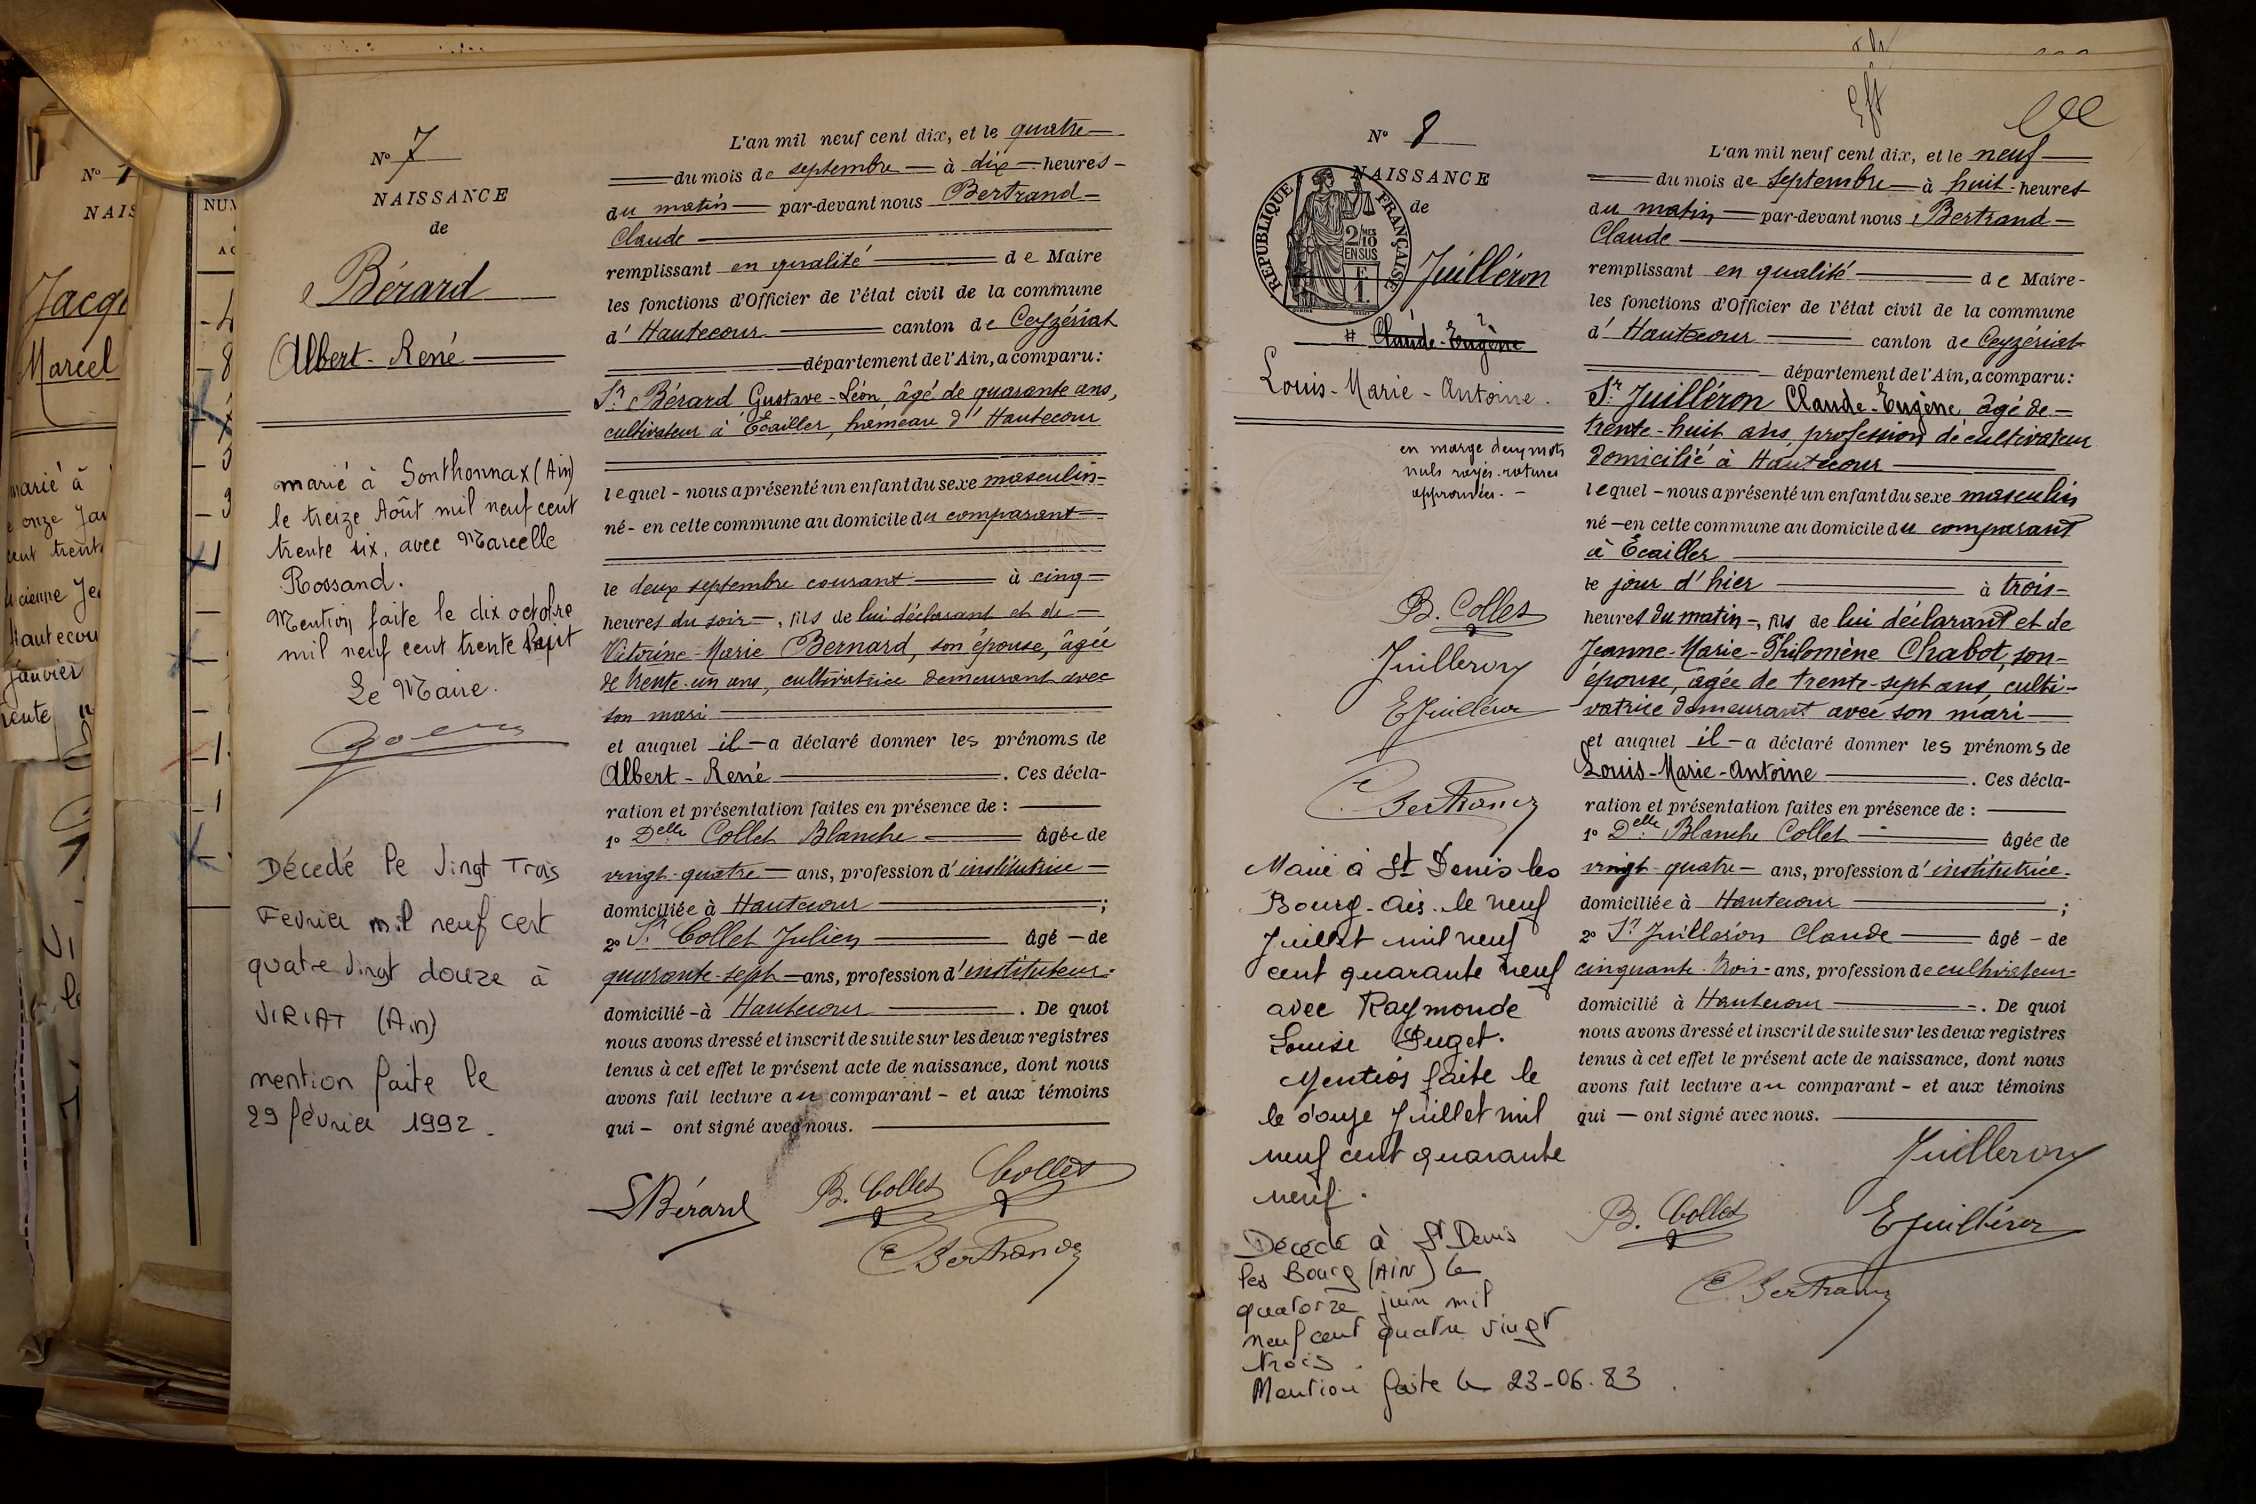 N° 7
NAISSANCE
de
Bérard
Albert-René
marié à Sonthonnax (Ain)
le treize Août mil neuf cent
trente six, avec Marcelle
Rossand.
Mention faite le dix octobre
mil neuf cent trente
Le Maire.
Décedé le Vingt Trois
Fevrier mil neuf cent
quatre Vingt douze à
VIRIAT (Ain)
mention faite le
29 février 1992.
L'an mil neuf cent dix, et le quatre
du mois de septembre à dix heures
du matin par-devant nous Bertrand
Claude
remplissant en qualité de Maire
les fonctions d'Officier de l'état civil de la commune
d' Hautecour canton de Ceyzériat
département de l'Ain, a comparu:
Sr Bérard Gustave-Léon, âgé de quarante ans,
cultivateur à Écailler, hameau d'Hautecour
lequel - nous a présenté un enfant du sexe masculin
né - en cette commune au domicile du comparant
le deux septembre courant à cinq
heures du soir, fils de lui déclarant et de
Victorine-Marie Bernard, son épouse, âgée
de trente-un ans, cultivatrice demeurant avec
son mari
et auquel il a déclaré donner les prénoms de
Albert-René. Ces décla-
ration et présentation faites en présence de :
1° Delle Collet Blanche âgée de
vingt-quatre ans, profession d'institutrice
domiciliée à Hautecour ;
2° Sr Collet Julien âgé - de
quarante-sept ans, profession d'instituteur
domicilié - à Hautecour. De quoi
nous avons dressé et inscrit de suite sur les deux registres
tenus à cet effet le présent acte de naissance, dont nous
avons fait lecture au comparant - et aux témoins
qui - ont signé avec nous.
B. Collet Collet
LBérard
C Bertrand
N° 8
NAISSANCE
de
RÉPUBLIQUE FRANÇAISE
2/10 MES
EN SUS
F
1.
Juilléron
# Claude-Eugène
Louis-Marie-Antoine.
en marge deux mots
nuls rayés. ratures
approuvées. -
B. Collet
Juilleron
EJuilléron
C Bertrand
Marié à St Denis les
Bourg-Ain. le neuf
Juillet mil neuf
cent quarante neuf
avec Raymonde
Louise Puget.
Mention faite le
le douze Juillet mil
neuf cent quarante
neuf.
Décédé à St Denis
les Bourg (AIN) le
quatorze juin mil
neuf cent quatre vingt
trois.
Mention faite le 23-06.83
L'an mil neuf cent dix, et le neuf
du mois de Septembre à huit heures
du matin par-devant nous Bertrand
Claude
remplissant en qualité de Maire
les fonctions d'Officier de l'état civil de la commune
d' Hautecour canton de Ceyzériat
département de l'Ain, a comparu:
Sr Juilléron Claude-Eugène âgé de
trente-huit ans, profession de cultivateur
domicilié à Hautecour
lequel - nous a présenté un enfant du sexe masculin
né - en cette commune au domicile du comparant
à Écailler
le jour d'hier à trois
heures du matin, fils de lui déclarant et de
Jeanne-Marie-Philomène Chabot, son
épouse, âgée de trente-sept ans, culti-
vatrice demeurant avec son mari
et auquel il a déclaré donner les prénoms de
Louis-Marie-Antoine. Ces décla-
ration et présentation faites en présence de :
1° Delle Blanche Collet âgée de
vingt-quatre ans, profession d'institutrice
domiciliée à Hautecour ;
2° Sr Juilleron Claude âgé - de
cinquante-trois ans, profession de cultivateur
domicilié à Hautecour. De quoi
nous avons dressé et inscrit de suite sur les deux registres
tenus à cet effet le présent acte de naissance, dont nous
avons fait lecture au comparant - et aux témoins
qui - ont signé avec nous.
Juilleron
B. Collet EJuilléron
C Bertrand